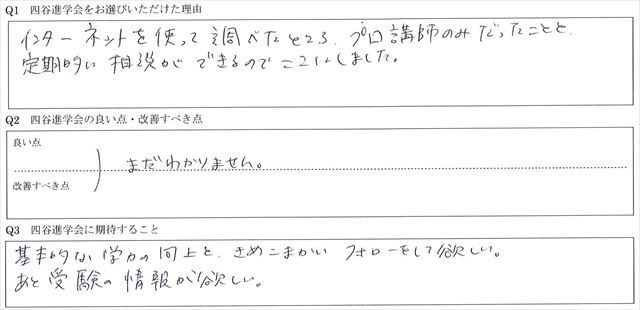 Q1 四谷進学会をお選びいただけた理由
インターネットを使って調べたところ、プロ講師のみだったことと、
定期的に相談ができるのでここにしました。
Q2 四谷進学会の良い点・改善すべき点
良い点
まだわかりません。
改善すべき点
Q3 四谷進学会に期待すること
基本的な学力の向上と、きめこまかいフォローをして欲しい。
あと受験の情報が欲しい。